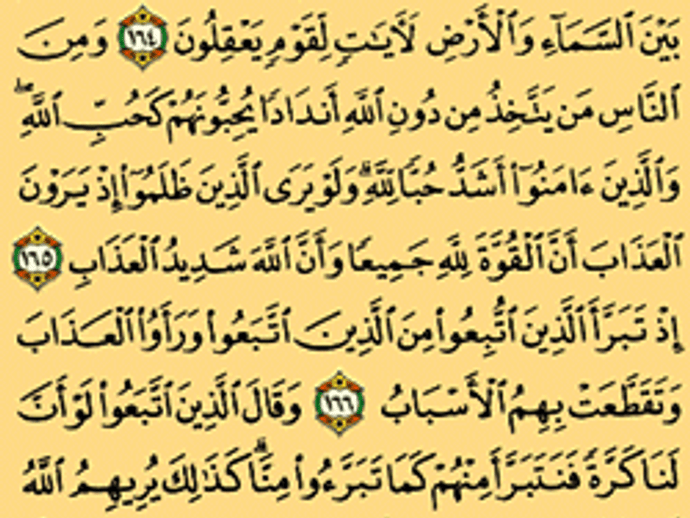 بَيْنَ ٱلسَّمَآءِ وَٱلْأَرْضِ لَءَايَٰتٍ لِّقَوْمٍ يَعْقِلُونَ ١٦٤ وَمِنَ
ٱلنَّاسِ مَن يَتَّخِذُ مِن دُونِ ٱللَّهِ أَندَادًا يُحِبُّونَهُمْ كَحُبِّ ٱللَّهِ ۖ
وَٱلَّذِينَ ءَامَنُوٓا۟ أَشَدُّ حُبًّا لِّلَّهِ ۗ وَلَوْ يَرَى ٱلَّذِينَ ظَلَمُوٓا۟ إِذْ يَرَوْنَ
ٱلْعَذَابَ أَنَّ ٱلْقُوَّةَ لِلَّهِ جَمِيعًا وَأَنَّ ٱللَّهَ شَدِيدُ ٱلْعَذَابِ ١٦٥
إِذْ تَبَرَّأَ ٱلَّذِينَ ٱتُّبِعُوا۟ مِنَ ٱلَّذِينَ ٱتَّبَعُوا۟ وَرَأَوُا۟ ٱلْعَذَابَ
وَتَقَطَّعَتْ بِهِمُ ٱلْأَسْبَابُ ١٦٦ وَقَالَ ٱلَّذِينَ ٱتَّبَعُوا۟ لَوْ أَنَّ
لَنَا كَرَّةً فَنَتَبَرَّأَ مِنْهُمْ كَمَا تَبَرَّءُوا۟ مِنَّا ۗ كَذَٰلِكَ يُرِيهِمُ ٱللَّهُ